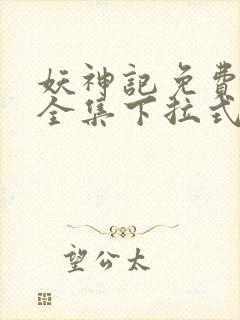 妖神記免費
全集下拉式
望公太